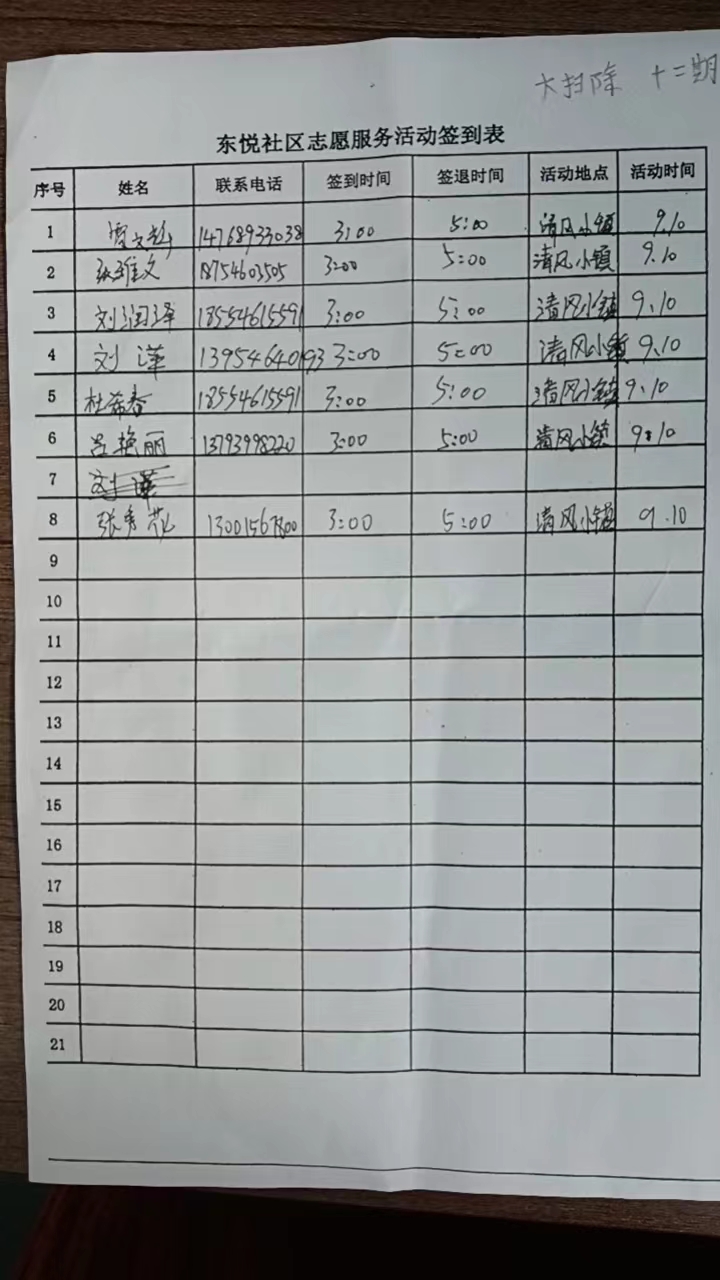 大扫除 十二期
东悦社区志愿服务活动签到表
序号 姓名 联系电话 签到时间 签退时间 活动地点 活动时间
1 14768933038 3:00 5:00 清风小镇 9.10
2 张维文 18754603505 3:00 5:00 清风小镇 9.10
3 刘润泽 18554615591 3:00 5:00 清风小镇 9.10
4 刘潇 13954640193 3:00 5:00 清风小镇 9.10
5 杜希春 18554615591 3:00 5:00 清风小镇 9.10
6 吕艳丽 13793998220 3:00 5:00 清风小镇 9.10
7
8 张秀花 13001567800 3:00 5:00 清风小镇 9.10
9
10
11
12
13
14
15
16
17
18
19
20
21